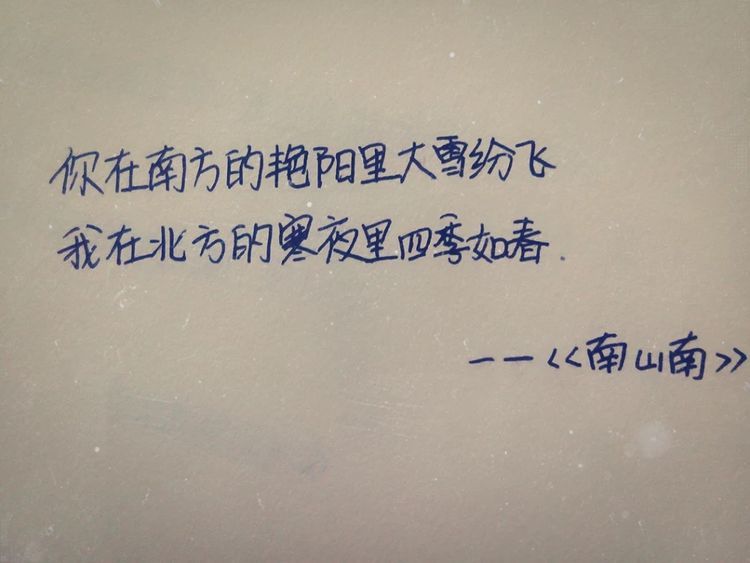 你在南方的艳阳里大雪纷飞
我在北方的寒夜里四季如春.
——<<南山南>>